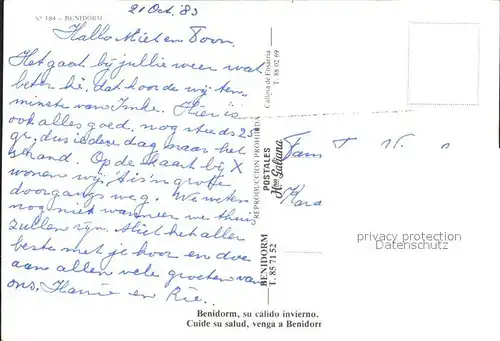 21 Oct. 83
Nº 184 - BENIDORM
Hallo Miet en Toon.
Het gaat bij jullie weer wat
beter hè, dat hoorde wij ten
minste van Imke. Hier is
ook alles goed, nog steeds 25
gr, dus iedere dag naar het
strand. Op de kaart bij X
wonen wij, 't is 'n grote
doorgangsweg. We weten
nog niet wanneer we thuis
zullen zijn. Miet het aller
beste met je hoor en doe
aan allen vele groeten van
ons. Hannie en Rie..
REPRODUCCION PROHIBIDA
Calinsa de Ensarria
T. 88 02 69
POSTALES
Hnos Galiana
BENIDORM
T. 85 71 52
Fam T
privacy protection
Datenschutz
Benidorm, su cálido invierno.
Cuide su salud, venga a Benidorm